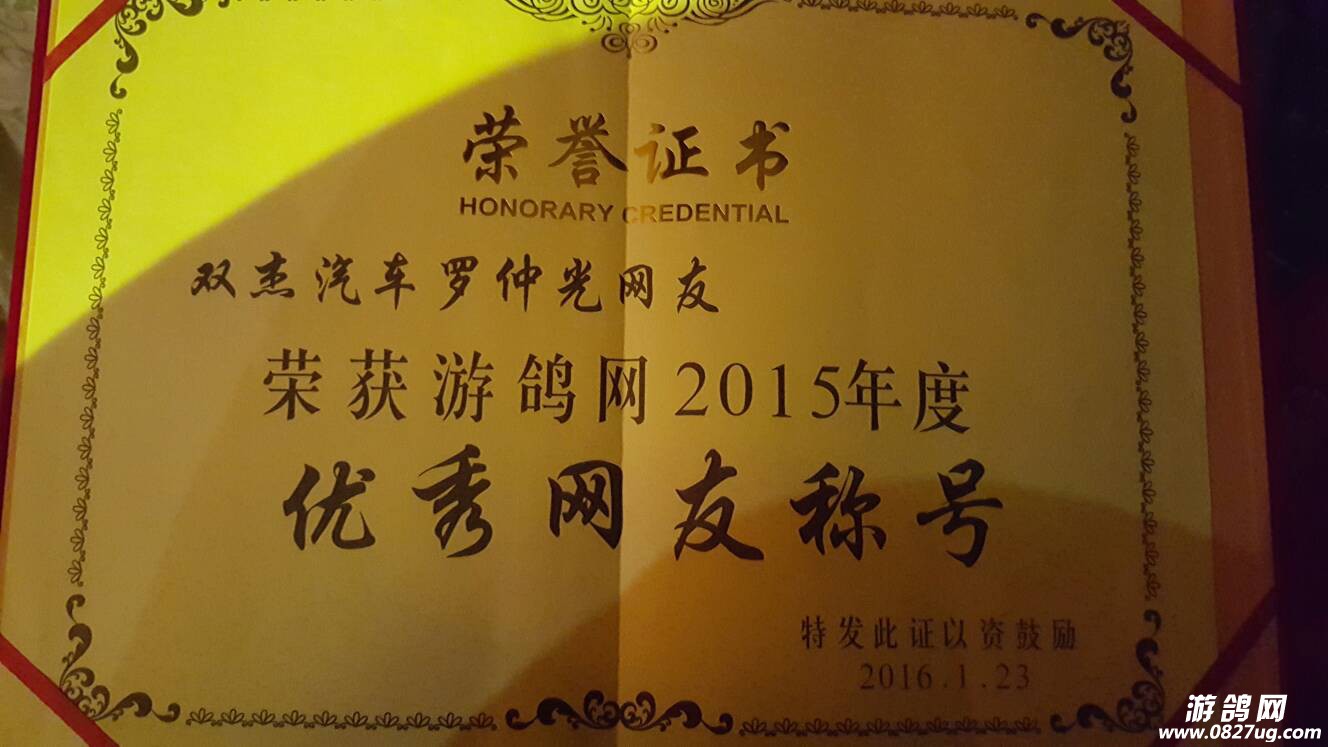 荣誉证书
HONORARY CREDENTIAL
双杰汽车罗仲光网友
荣获游鸽网2015年度
优秀网友称号
特发此证以资鼓励
2016.1.23
游鸽网
www.0827ug.com